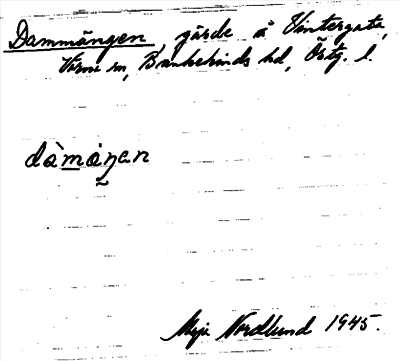 Dammängen gärde å Vintergata,
Värna sn, Bankekinds hd, Östg. l.
dàmäŋan
Maja Nordlund 1945.